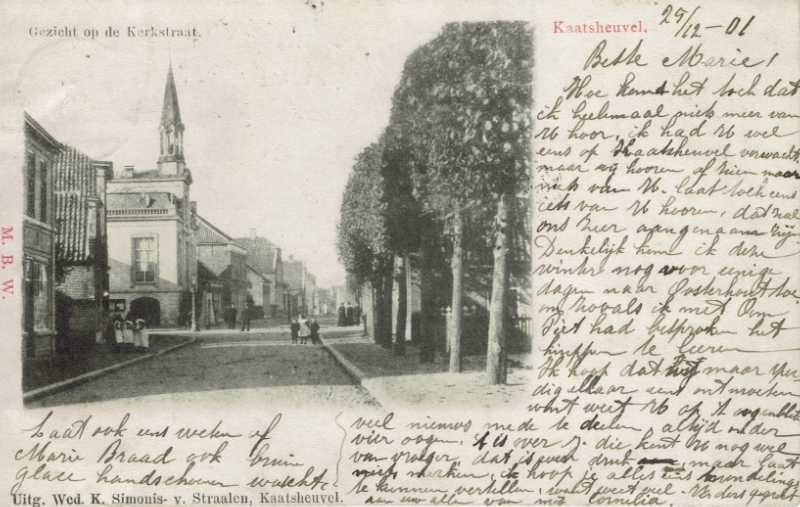 Gezicht op de Kerkstraat.
Kaatsheuvel.
29/12-01
Beste Marie!
Hoe komt het toch dat
ik heelemaal niets meer van
U hoor, ik had U wel
eens op Kaatsheuvel verwacht
maar wij hooren of zien maar
niets van U. laat toch eens
iets van U hooren, dat zal
ons zeer aangenaam zijn
Denkelijk kom ik deze
winter nog voor eenige
dagen naar Oosterhout toe
om zooals ik met Oom
Piet had besproken het
te leeren
Ik hoop dat wij maar
elkaar eens ontmoeten
want weet U op 't oogenblik
veel nieuws mede te deelen, altijd onder
vier oogen. 't is over J. die kent U nog wel
van vroeger, dat is even maar laat
niets merken, ik hoop je alles eens mondelings
te kunnen vertellen, want weet veel. Verders gegroet
aan u allen van mij Cornelia.
Laat ook eens weten of
Marie Braad ook bruin
glacé handschoenen wascht.
M. B. W.
Uitg. Wed. K. Simonis- v. Straalen, Kaatsheuvel.